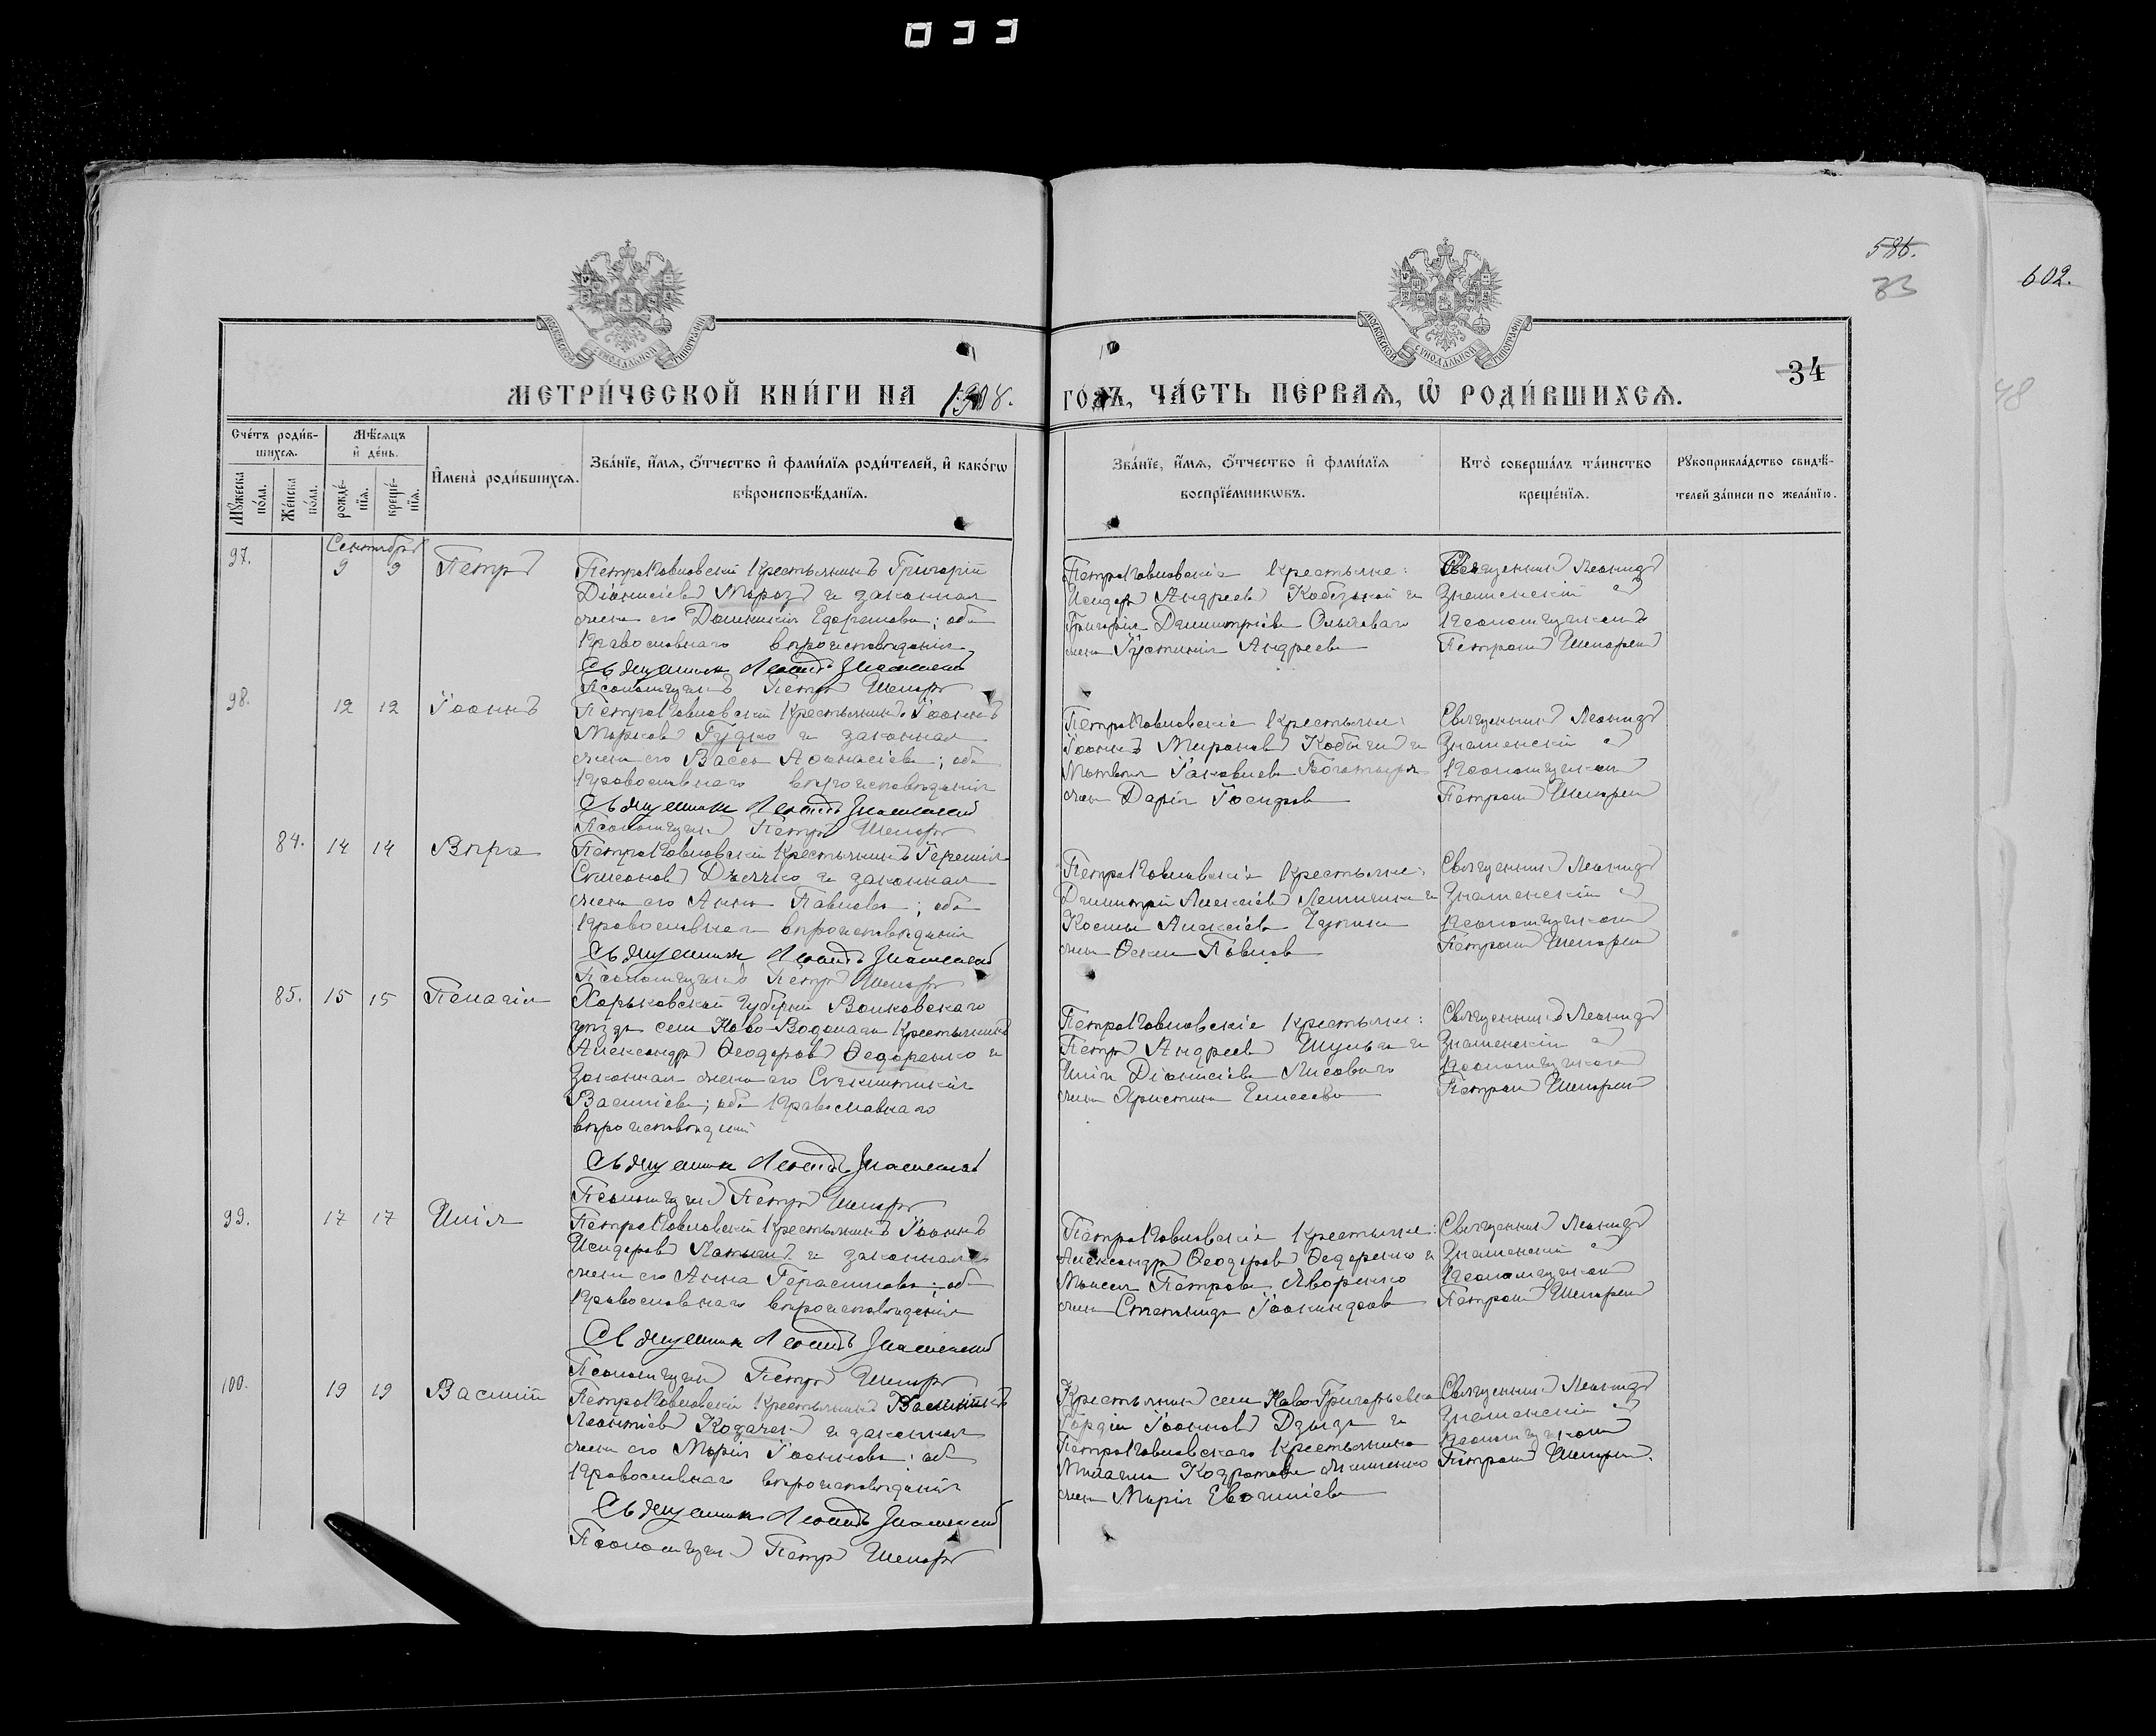 033
586.
33
602.
34
48
МОСКОВСКОЙ СѴНОДАЛЬНОЙ ТИПОГРАФІИ
МОСКОВСКОЙ СѴНОДАЛЬНОЙ ТИПОГРАФІИ
МЕТРИ́ЧЕСКОЙ КНИ́ГИ НА 1908. ГОДЪ, ЧА́СТЬ ПЕ́РВАѦ, Ѡ҆ РОДИ́ВШИХСѦ.
Сче́тъ роди́в-
шихсѧ.
Мꙋ́жеска по́ла.
Же́нска по́ла.
Мѣ́сѧцъ
и҆ де́нь.
рожде́-нїѧ.
креще́-нїѧ.
И҆мена̀ роди́вшихсѧ.
Зва́нїе, и҆́мѧ, ѻ҆́тчество и҆ фами́лїѧ роди́телей, и҆ како́гѡ
вѣроисповѣ́данїѧ.
Зва́нїе, и҆́мѧ, ѻ҆́тчество и҆ фами́лїѧ
воспрїе́мникѡвъ.
Кто̀ соверша́лъ та́инство
креще́нїѧ.
Рꙋкоприкла́дство свидѣ́-
телей за́писи по жела́нїю.
Сентябрь
97. 9 9 Петръ
ПетроПавловскій Крестьянинъ Григорій
Діонисіевъ Морозъ и законная
жена его Домникія; оба
Православнаго вѣроисповѣданія
Священникъ Леонидъ Знаменскій
Псаломщикъ Петръ
ПетроПавловскіе Крестьяне:
Исидоръ Андреевъ и
Григорія Димитріева
жена Іустинія Андреева
Священникъ Леонидъ
Знаменскій съ
Псаломщикомъ
Петромъ
98. 12 12 Іоаннъ
ПетроПавловскій Крестьянинъ Іоаннъ
Марковъ Гудко и законная
жена его Васса Аѳанасіева; оба
Православнаго вѣроисповѣданія
Священникъ Леонидъ Знаменскій
Псаломщикъ Петръ
ПетроПавловскіе Крестьяне:
Іоаннъ Мироновъ и
Матвея Іаковлева Богатыря
жена Дарія
Священникъ Леонидъ
Знаменскій съ
Псаломщикомъ
Петромъ
84. 14 14 Вѣра
ПетроПавловскій Крестьянинъ Іеремія
Симеоновъ и законная
жена его Анна Павлова; оба
Православнаго вѣроисповѣданія
Священникъ Леонидъ Знаменскій
Псаломщикъ Петръ
ПетроПавловскіе Крестьяне:
Димитрій Алексіевъ и
Космы Алексіева
жена
Священникъ Леонидъ
Знаменскій съ
Псаломщикомъ
Петромъ
85. 15 15 Пелагія
Харьковской Губерніи Валковскаго
уѣзда села Ново-Водолаги Крестьянинъ
Александръ Ѳеодоровъ Ѳедоренко и
Законная жена его
Василіева; оба Православнаго
вѣроисповѣданія
Священникъ Леонидъ Знаменскій
Псаломщикъ Петръ
ПетроПавловскіе Крестьяне:
Петръ Андреевъ Шульга и
Иліи Діонисіева Лисоваго
жена Христина Елисеева
Священникъ Леонидъ
Знаменскій съ
Псаломщикомъ
Петромъ
99. 17 17 Илія
ПетроПавловскій Крестьянинъ Іоаннъ
Исидоровъ и законная
жена его Анна Герасимова; оба
Православнаго вѣроисповѣданія
Священникъ Леонидъ Знаменскій
Псаломщикъ Петръ
ПетроПавловскіе Крестьяне:
Александръ Ѳеодоровъ Ѳедоренко и
Моисея Петрова
жена
Священникъ Леонидъ
Знаменскій съ
Псаломщикомъ
Петромъ
100. 19 19 Василій
ПетроПавловскій Крестьянинъ
Леонтіевъ Козачекъ и законная
жена его Марія Іоаннова; оба
Православнаго вѣроисповѣданія
Священникъ Леонидъ Знаменскій
Псаломщикъ Петръ
Крестьянинъ села Ново-Григорьевка
Гордій Іоанновъ и
ПетроПавловскаго Крестьянина
Кодратова
жена Марія
Священникъ Леонидъ
Знаменскій съ
Псаломщикомъ
Петромъ